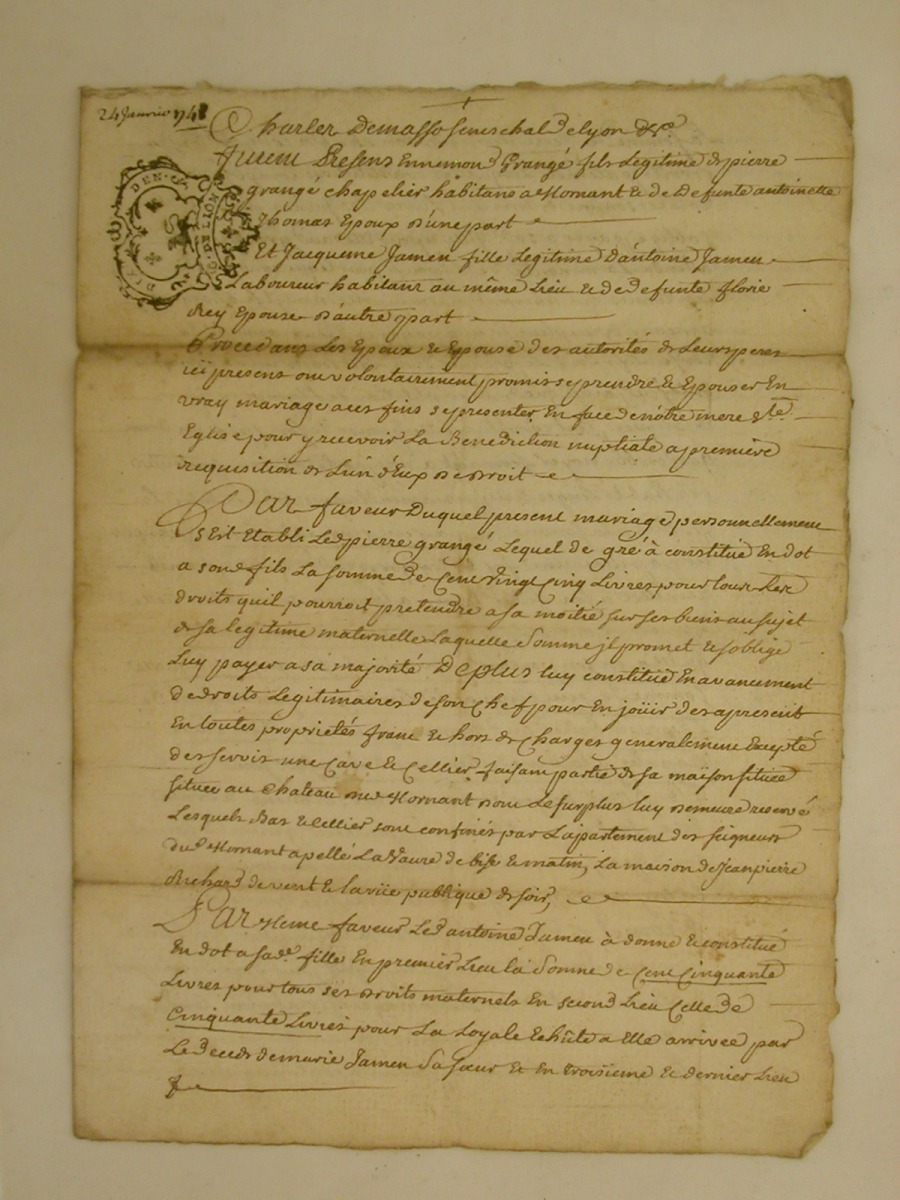 24 Janvier 1748
Charles Demasso seneschal de lyon &ca.
furent Presens Ennemond Grangé fils Legitime de pierre
grangé chapelier habitant a Mornant & de Defunte antoinette
Thomas Epoux d'une part
Et Jacqueme Jamen fille Legitime D'antoine Jamen
Laboureur habitant au même Lieu & de defunte florie
Rey Epouse d'autre part
Procedans Les Epoux & Epouse des autorités de Leurs peres
ici presens ont volontairement promis se prendre & Epouser En
vray mariage aux fins se presenter En face de nôtre mere Ste.
Eglise pour y recevoir La Benediction nuptiale a premiere
requisition de L'un d'Eux de droit
Par faveur Duquel present mariage personnellement
s'Est Etabli Led pierre grangé Lequel de gré à constitué En dot
a sond fils La somme de Cent Vingt Cinq Livres pour tous Les
droits qu'il pourroit pretendre a sa moitié sur ses biens au sujet
de sa legitime maternelle Laquelle Somme il promet & s'oblige
Luy payer a sa majorité De plus luy constitué En avancement
de droits Legitimaires de son Chef pour En joüir des apresent
En toutes proprietés franc & hors de Charges generalement Excepté
des servis une Cave & Cellier faisant partie de sa maison située
située au Chateau dud Mornant dont Le surplus luy demeure reservé
Lesquels Bas & Cellier sont confinés par L'apartement des seigneurs
dud Mornant apellé La Vaure de bise & matin, La maison de Jean pierre
Richard de vent & la rüe publique de soir,
Par Meme faveur Led antoine Jamen à donné & constitué
En dot a sade. fille En premier Lieu la Somme de Cent Cinquante
Livres pour tous ses Droits maternels En second Lieu Celle de
Cinquante Livres pour La Loyale Echûte a Elle arrivée par
Le Deceds de marie Jamen Sa sœur Et En troisieme & dernier Lieu